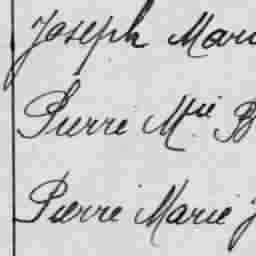 Joseph Mari
Pierre Mie B
Pierre Marie J